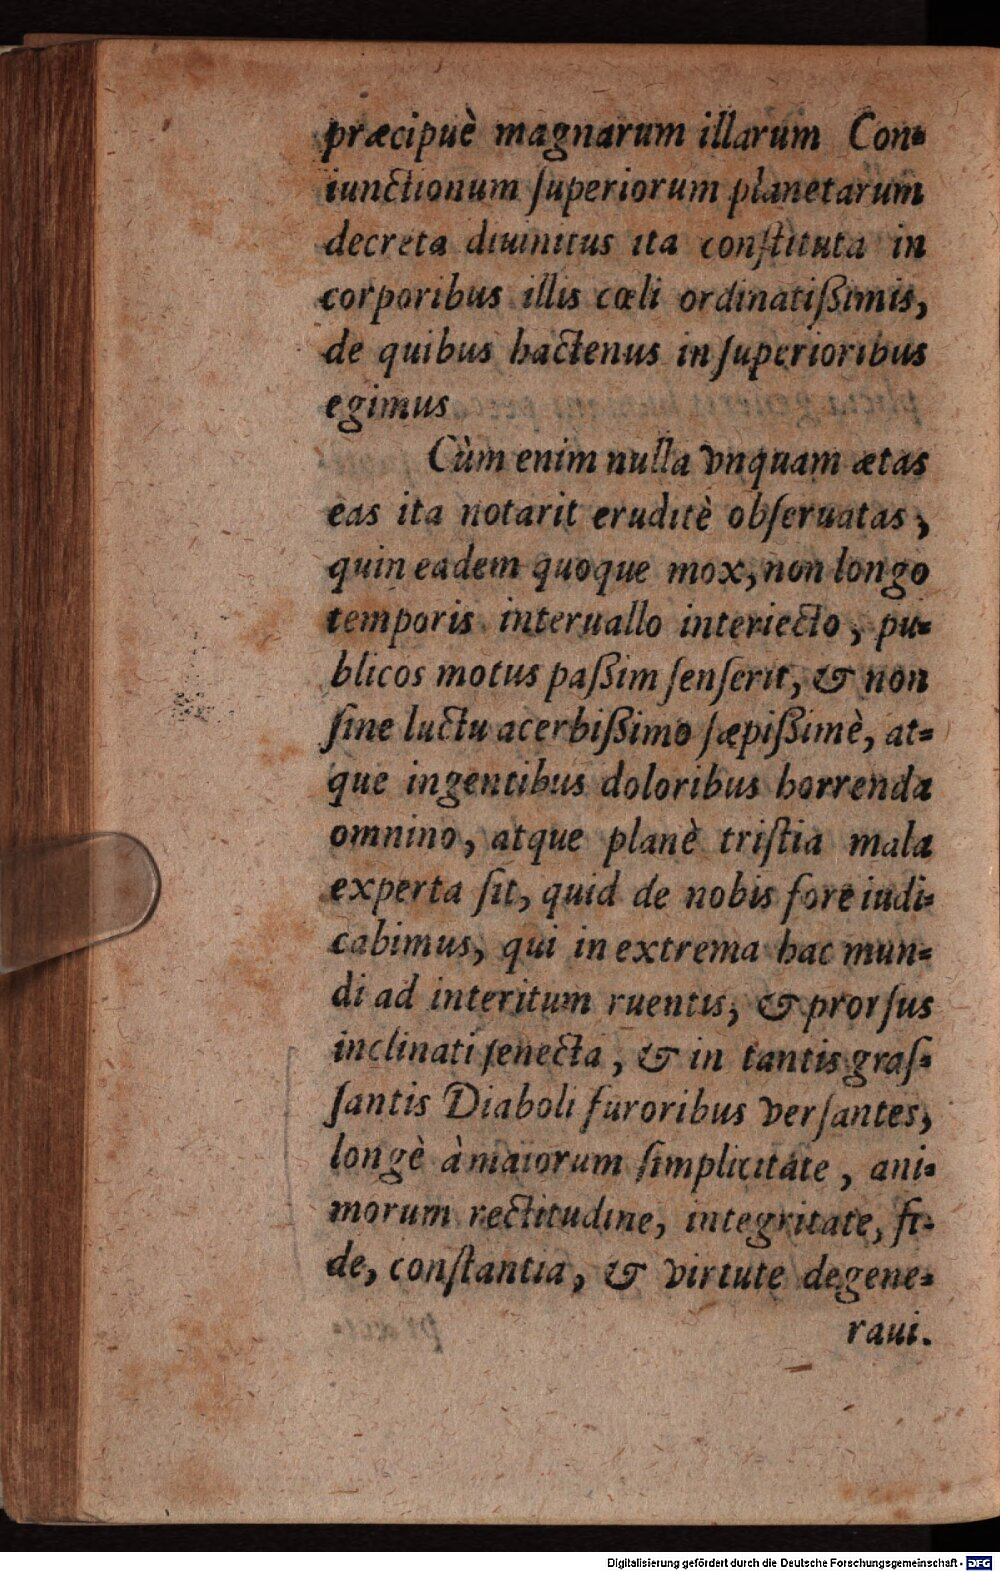 præcipuè magnarum illarum Con-
iunctionum ſuperiorum planetarum
decreta diuinitus ita conſtituta in
corporibus illis cœli ordinatiſsimis,
de quibus hactenus in ſuperioribus
egimus
Cùm enim nulla vnquam ætas
eas ita notarit eruditè obſeruatas,
quin eadem quoque mox, non longo
temporis interuallo interiecto, pu-
blicos motus paſsim ſenſerit, & non
ſine luctu acerbiſsimo ſæpiſsimè, at-
que ingentibus doloribus horrenda
omnino, atque planè triſtia mala
experta ſit, quid de nobis fore iudi-
cabimus, qui in extrema hac mun-
di ad interitum ruentis, & prorſus
inclinati ſenecta, & in tantis graſ-
ſantis Diaboli furoribus verſantes,
longè à maiorum ſimplicitate, ani-
morum rectitudine, integritate, fi-
de, conſtantia, & virtute degene-
raui.
Digitalisierung gefördert durch die Deutsche Forschungsgemeinschaft - DFG